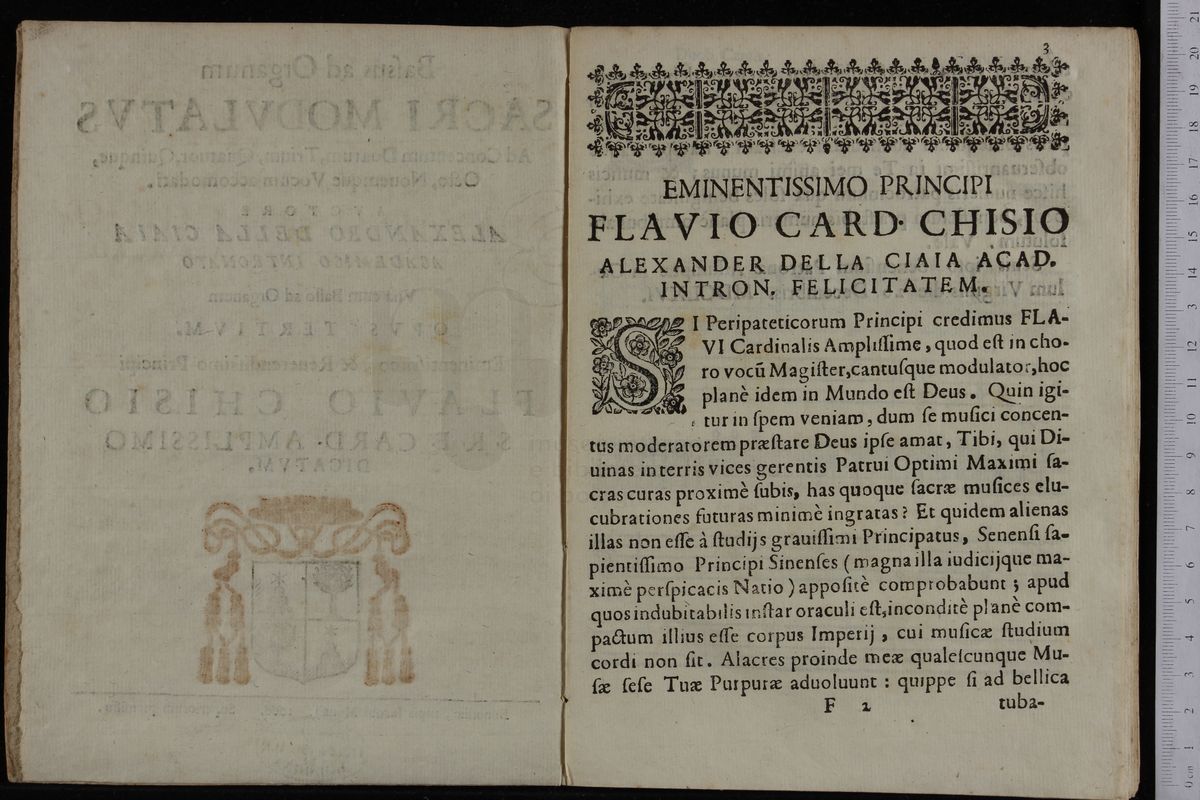 3
EMINENTISSIMO PRINCIPI
FLAVIO CARD· CHISIO
ALEXANDER DELLA CIAIA ACAD.
INTRON. FELICITATEM.
SI Peripateticorum Principi credimus FLA-
VI Cardinalis Ampliſſime, quod eſt in cho-
ro vocū Magiſter, cantuſque modulator, hoc
planè idem in Mundo eſt Deus. Quin igi-
tur in ſpem veniam, dum ſe muſici concen-
tus moderatorem præſtare Deus ipſe amat, Tibi, qui Di-
uinas in terris vices gerentis Patrui Optimi Maximi ſa-
cras curas proximè ſubis, has quoque ſacræ muſices elu-
cubrationes futuras minimè ingratas? Et quidem alienas
illas non eſſe à ſtudijs grauiſſimi Principatus, Senenſi ſa-
pientiſſimo Principi Sinenſes (magna illa iudicijque ma-
ximè perſpicacis Natio) appoſitè comprobabunt; apud
quos indubitabilis inſtar oraculi eſt, inconditè planè com-
pactum illius eſſe corpus Imperij, cui muſicæ ſtudium
cordi non ſit. Alacres proinde meæ qualeſcunque Mu-
ſæ ſeſe Tuæ Purpuræ aduoluunt: quippe ſi ad bellica
F 2 tuba-